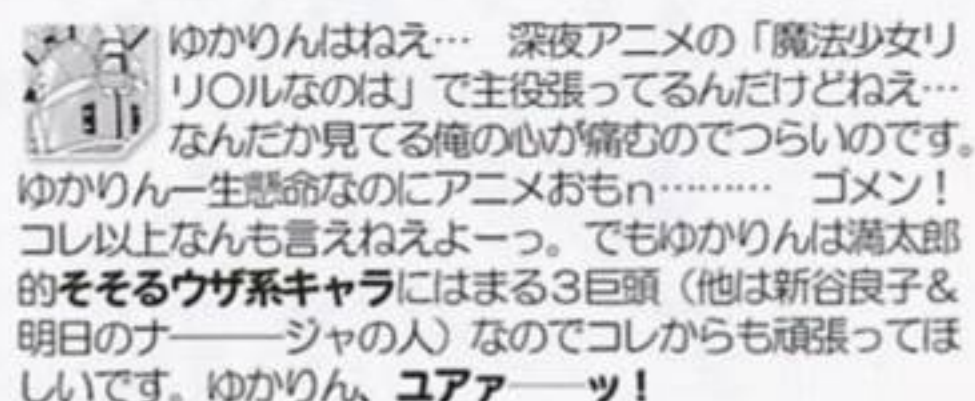 ゆかりんはねえ… 深夜アニメの「魔法少女リ
リ○ルなのは」で主役張ってるんだけどねえ…
なんだか見てる俺の心が痛むのでつらいのです。
ゆかりん一生懸命なのにアニメおもn……… ゴメン!
コレ以上なんも言えねえよーっ。でもゆかりんは満太郎
的そそるウザ系キャラにはまる3巨頭(他は新谷良子&
明日のナ───ジャの人)なのでコレからも頑張ってほ
しいです。ゆかりん、ユアァ──ッ!